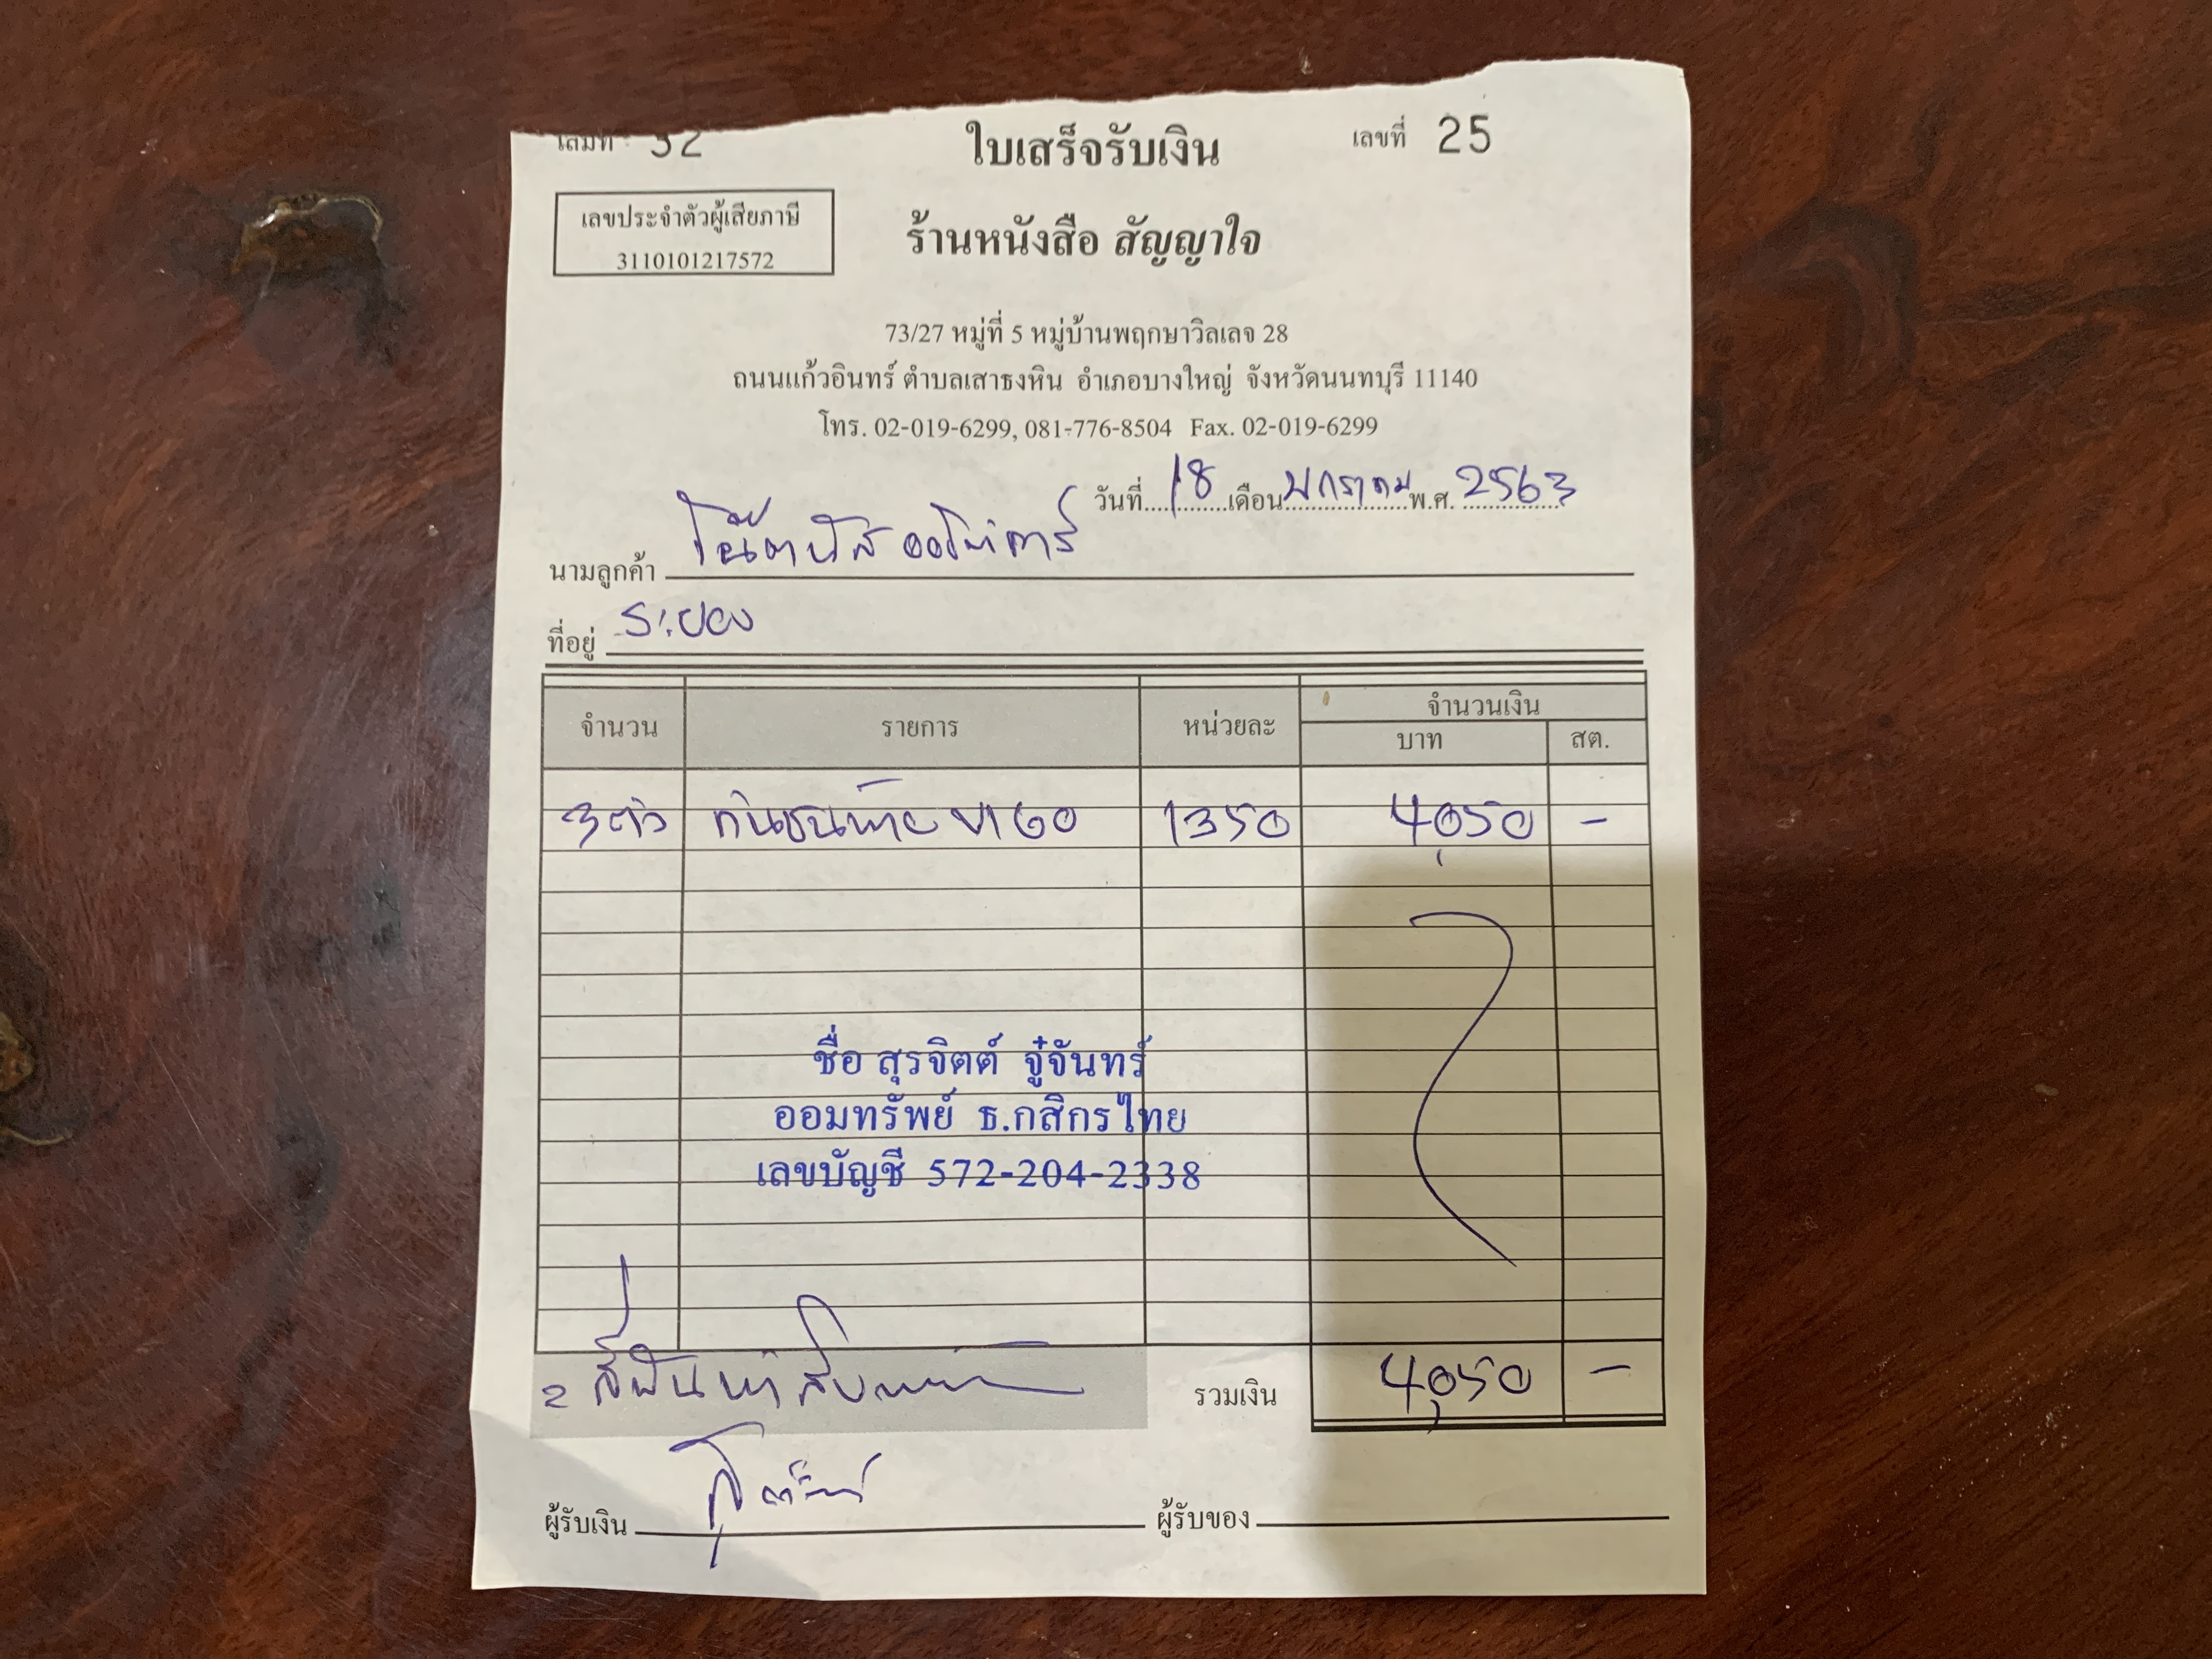 เล่มที่ 32 ใบเสร็จรับเงิน เลขที่ 25
เลขประจำตัวผู้เสียภาษี
3110101217572
ร้านหนังสือ สัญญาใจ
73/27 หมู่ที่ 5 หมู่บ้านพฤกษาวิลเลจ 28
ถนนแก้วอินทร์ ตำบลเสาธงหิน อำเภอบางใหญ่ จังหวัดนนทบุรี 11140
โทร. 02-019-6299, 081-776-8504 Fax. 02-019-6299
วันที่ 18 เดือน มกราคม พ.ศ. 2563
นามลูกค้า
ที่อยู่ ระยอง
จำนวน รายการ หน่วยละ จำนวนเงิน
บาท สต.
3 ตัว กันชนท้าย VIGO 1350 4,050 -
ชื่อ สุรจิตต์ จู๋จันทร์
ออมทรัพย์ ธ.กสิกรไทย
เลขบัญชี 572-204-2338
รวมเงิน 4,050 -
ผู้รับเงิน ผู้รับของ